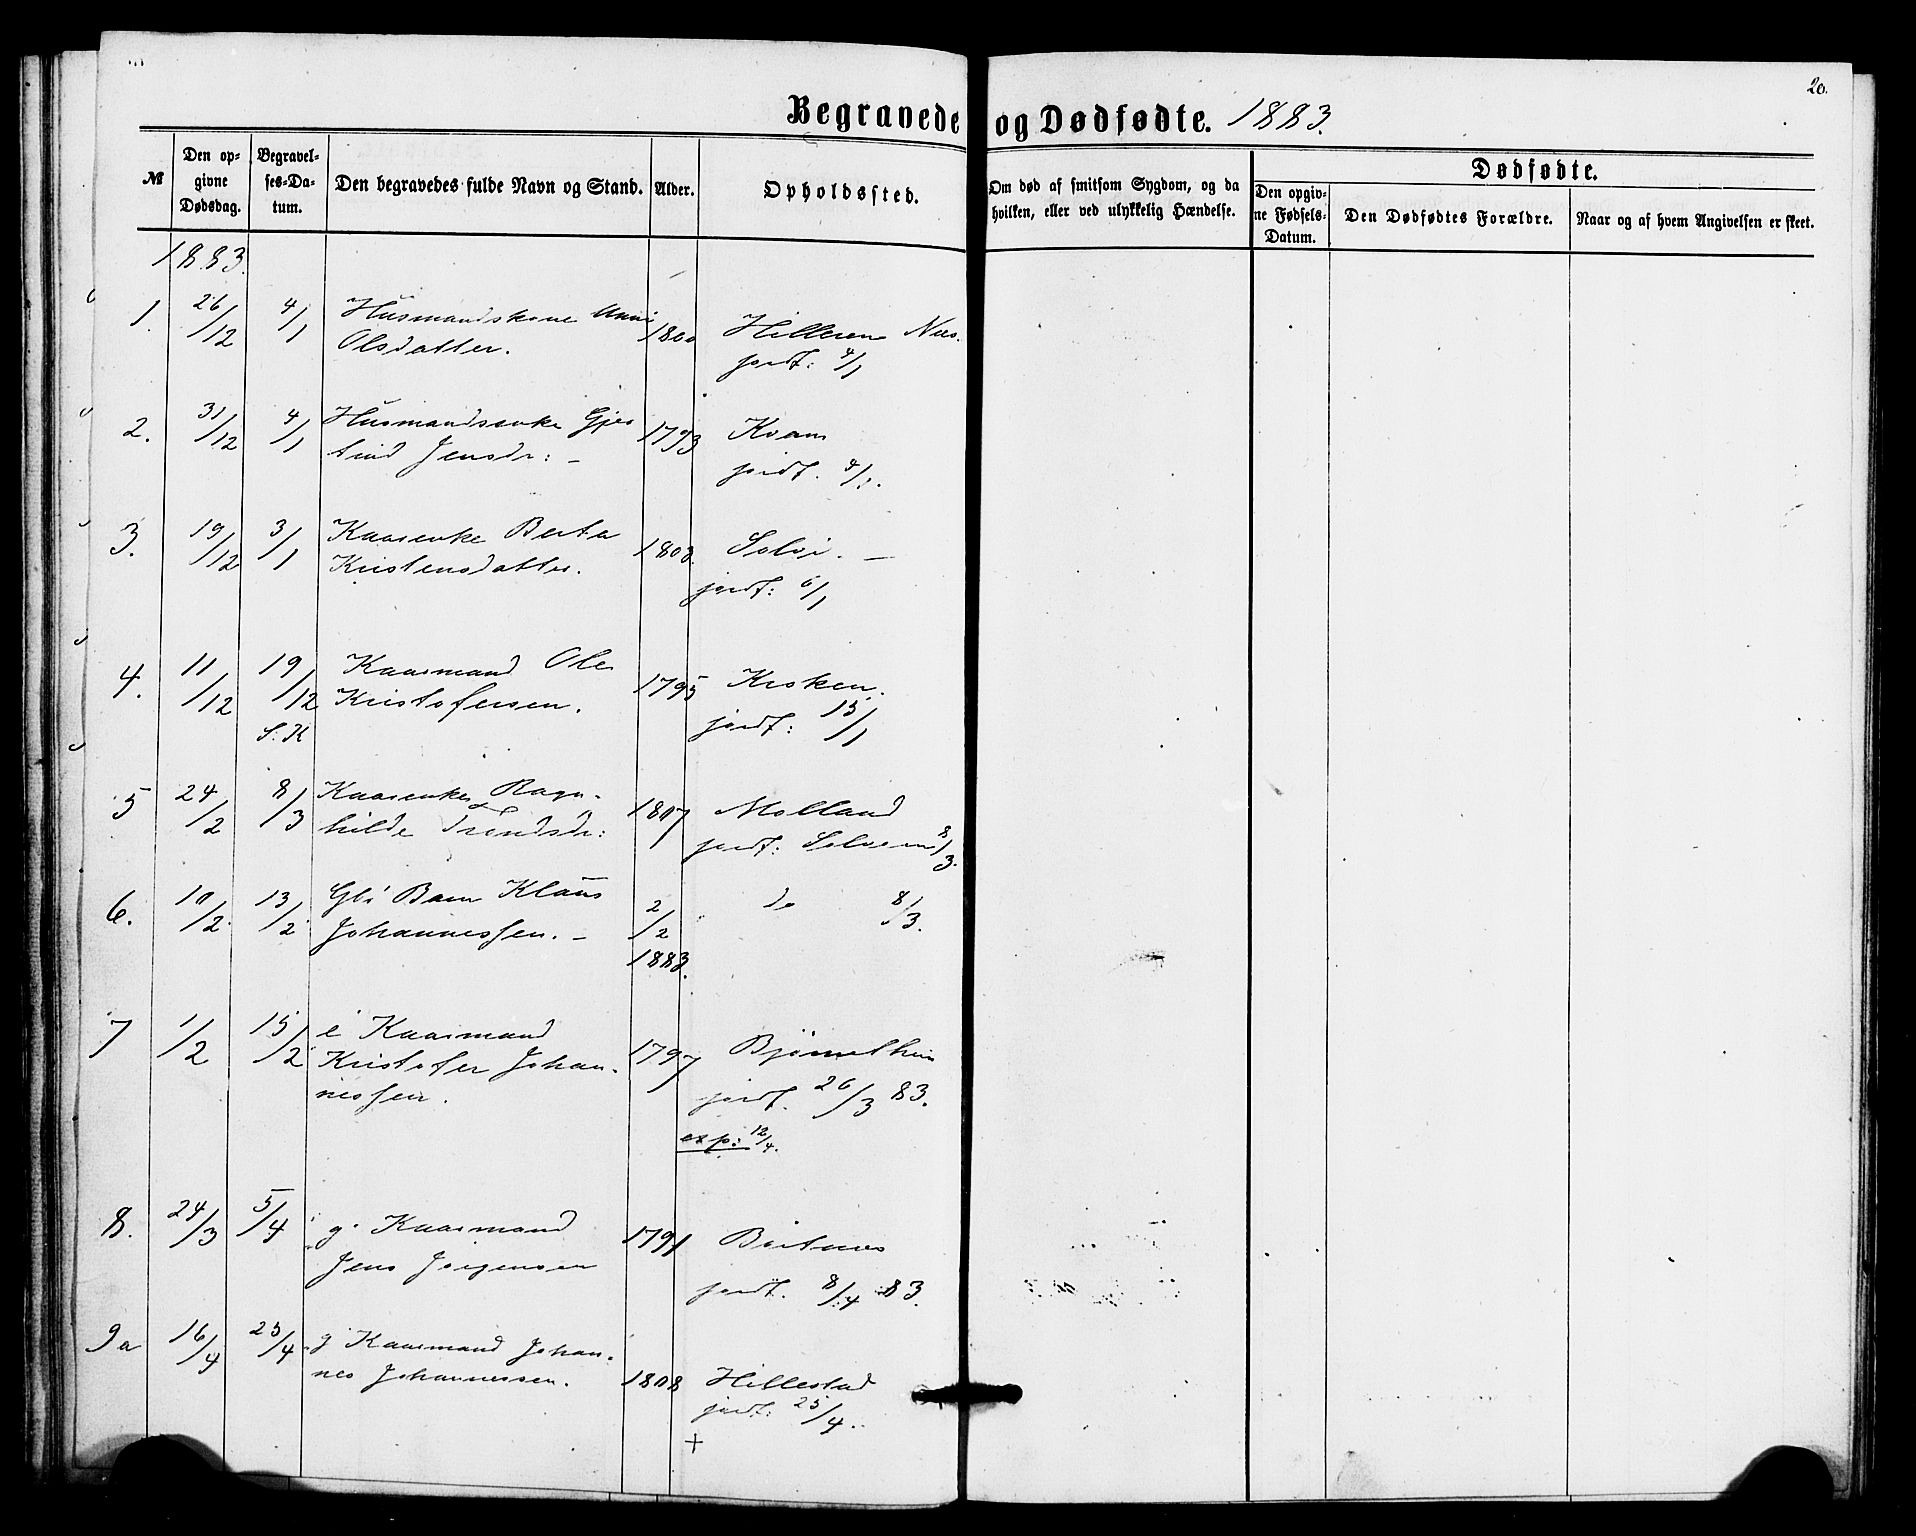 20.
Begravede og Dødfødte. 1883.
№
Den opgivne Dødsdag.
Begravelses-Datum.
Den begravedes fulde Navn og Stand.
Alder.
Opholdssted.
Om død af smitsom Sygdom, og da hvilken, eller ved ulykkelig Hændelse.
Dødfødte.
Den opgivne Fødsels-Datum.
Den Dødfødtes Forældre.
Naar og af hvem Angivelsen er skeet.
1883.
1. 26/12 4/1 Husmandskone Anna 1800 Hilleren Næs.
Olsdatter. jordf: 4/1
2. 31/12 4/1 Husmandsenke Gjer 1793 Kvam
trud Jensdr: – jordf. 4/1.
3. 19/12 3/1 Kaarenke Berta 1803. Solvi. –
Kristensdatter. jordf: 6/1
4. 11/12 19/12 Kaarmand Ole 1795 Kroken.
S.K Kristofersen. jordf: 15/1
5 24/2 8/3 Kaarenke Ragn- 1807 Molland
hilde Trondsdr: jordf: Solvorn 8/3.
6. 10/2 13/2 Gbr Barn Klaus 2/2 do 8/3.
Johannessen. – 1883.
7 1/2 15/2 e Kaarmand 1797 Bjørnethun
Kristofer Johan- jordf. 26/3 83.
nessen. exp: 12/4.
8. 24/3 5/4 g. Kaarmand 1791 Beitnes
Jens Jørgensen jordf. 8/4 83.
9a 16/4 25/4 g Kaarmand Johan-
nes Johannessen. 1808 Hillestad
jordf: 25/4.
+